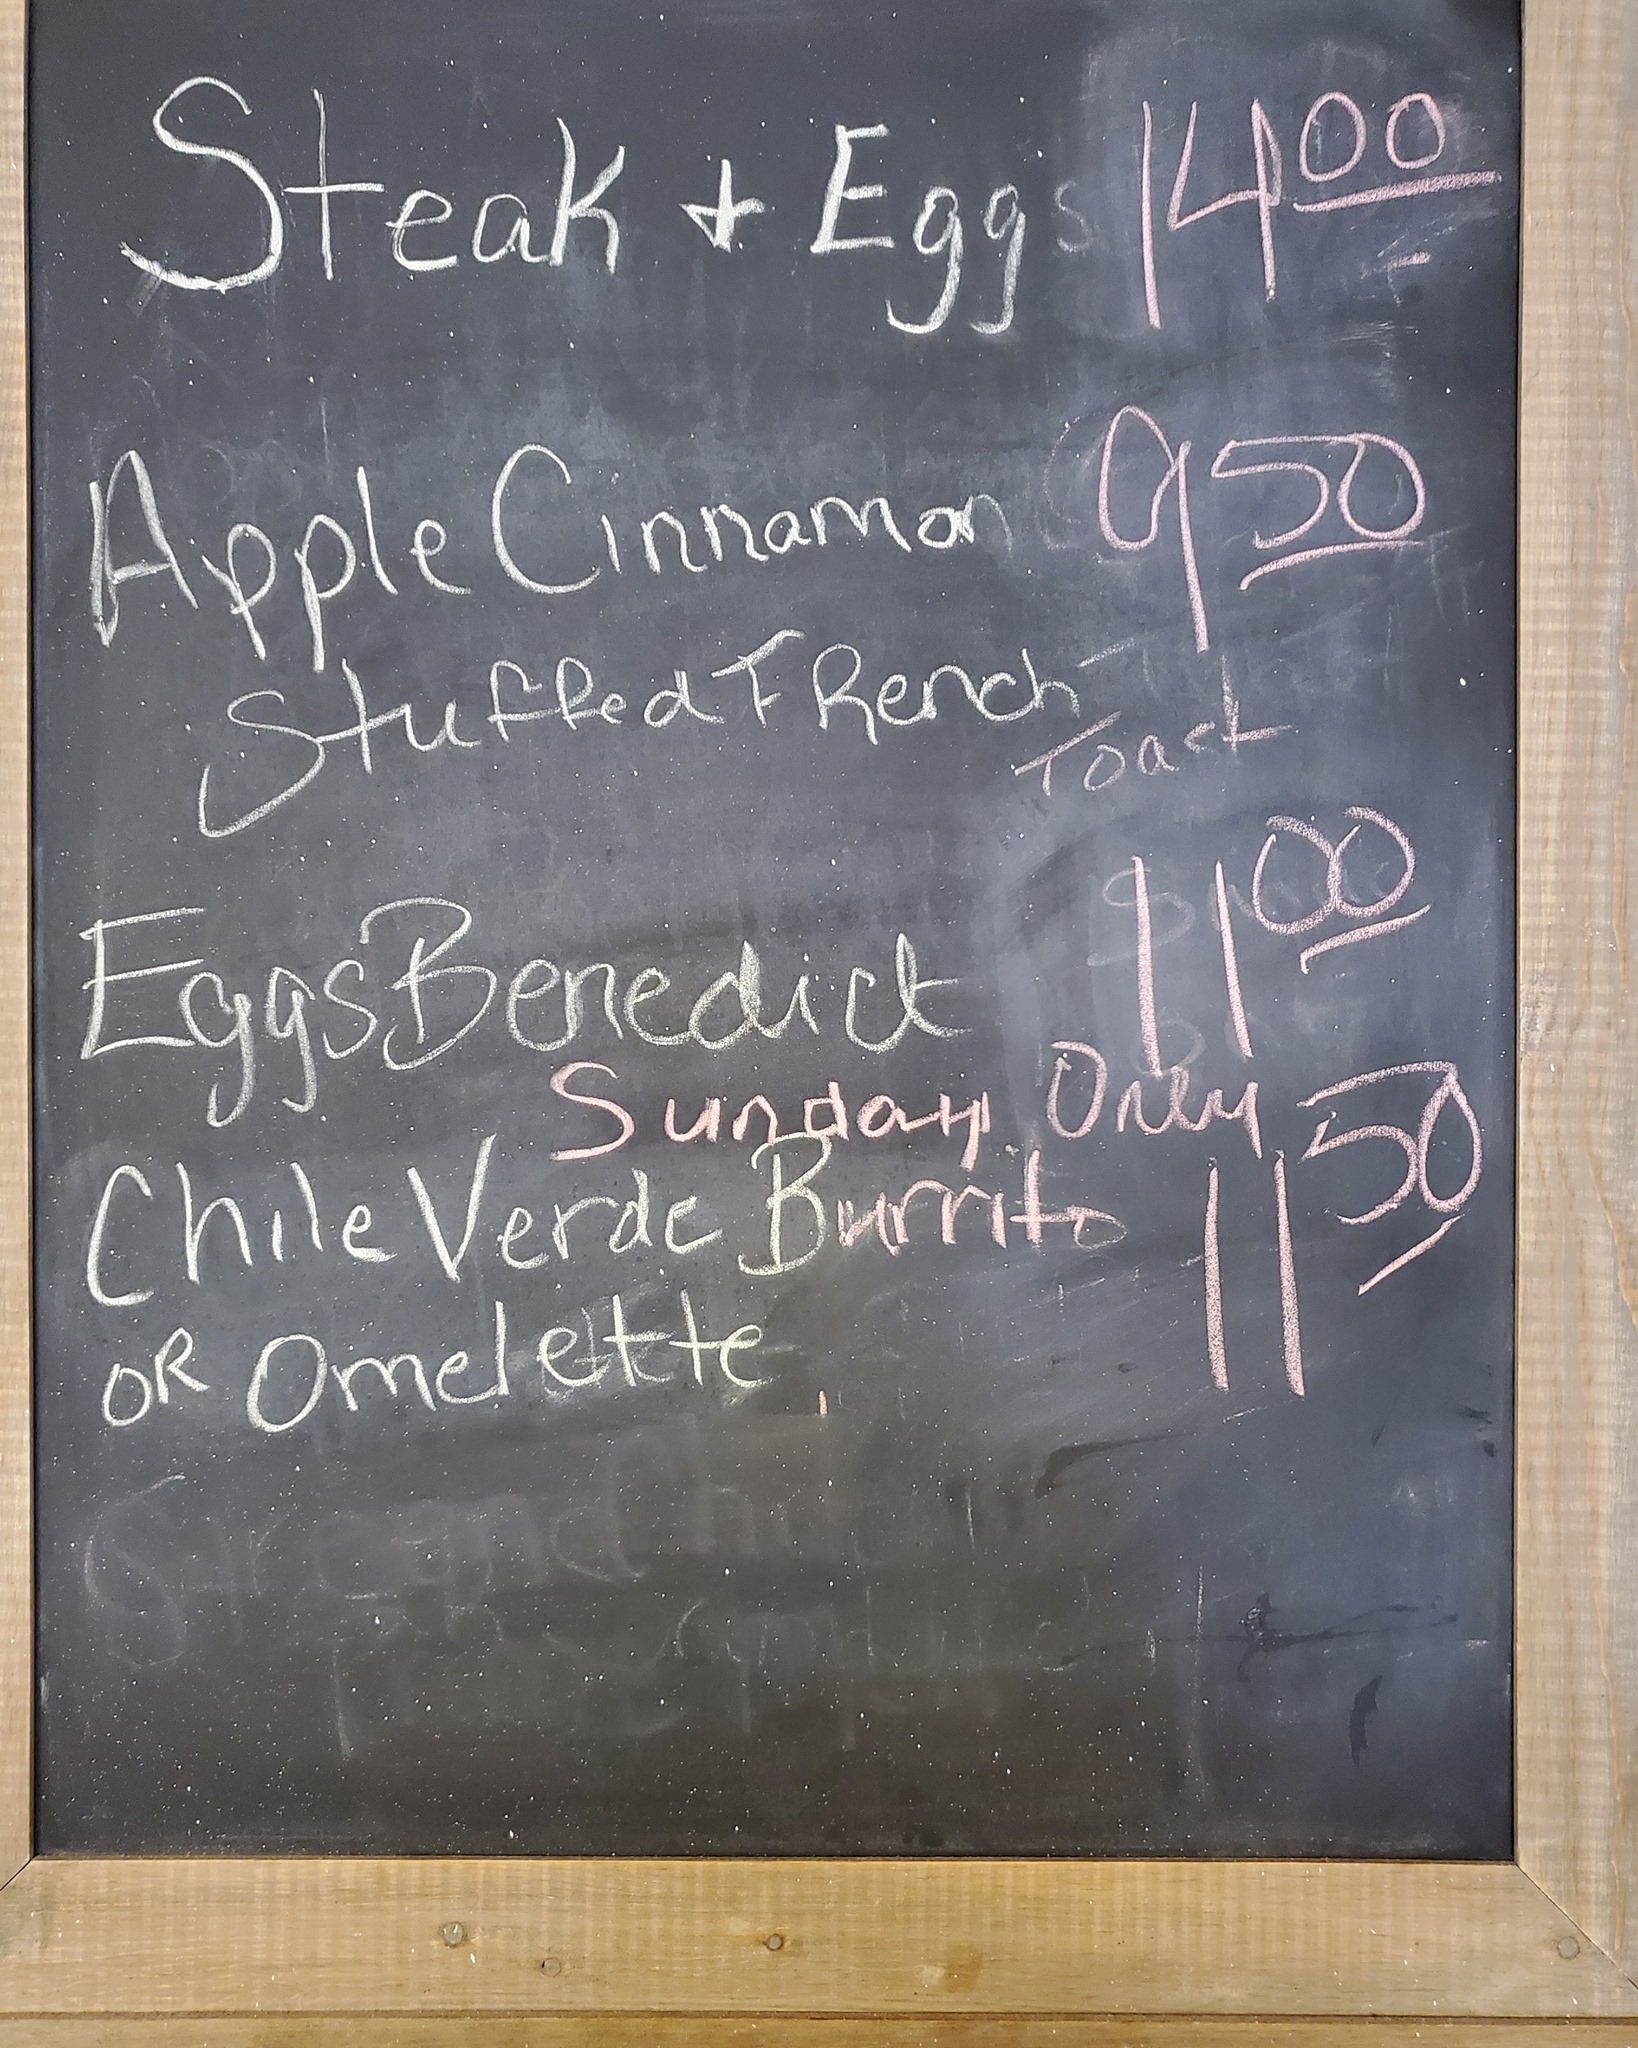 Steak + Eggs 14 00
Apple Cinnamon 9 50
Stuffed French
Toast
Eggs Benedict 11 00
Sunday Only
Chile Verde Burrito 11 50
OR Omelette